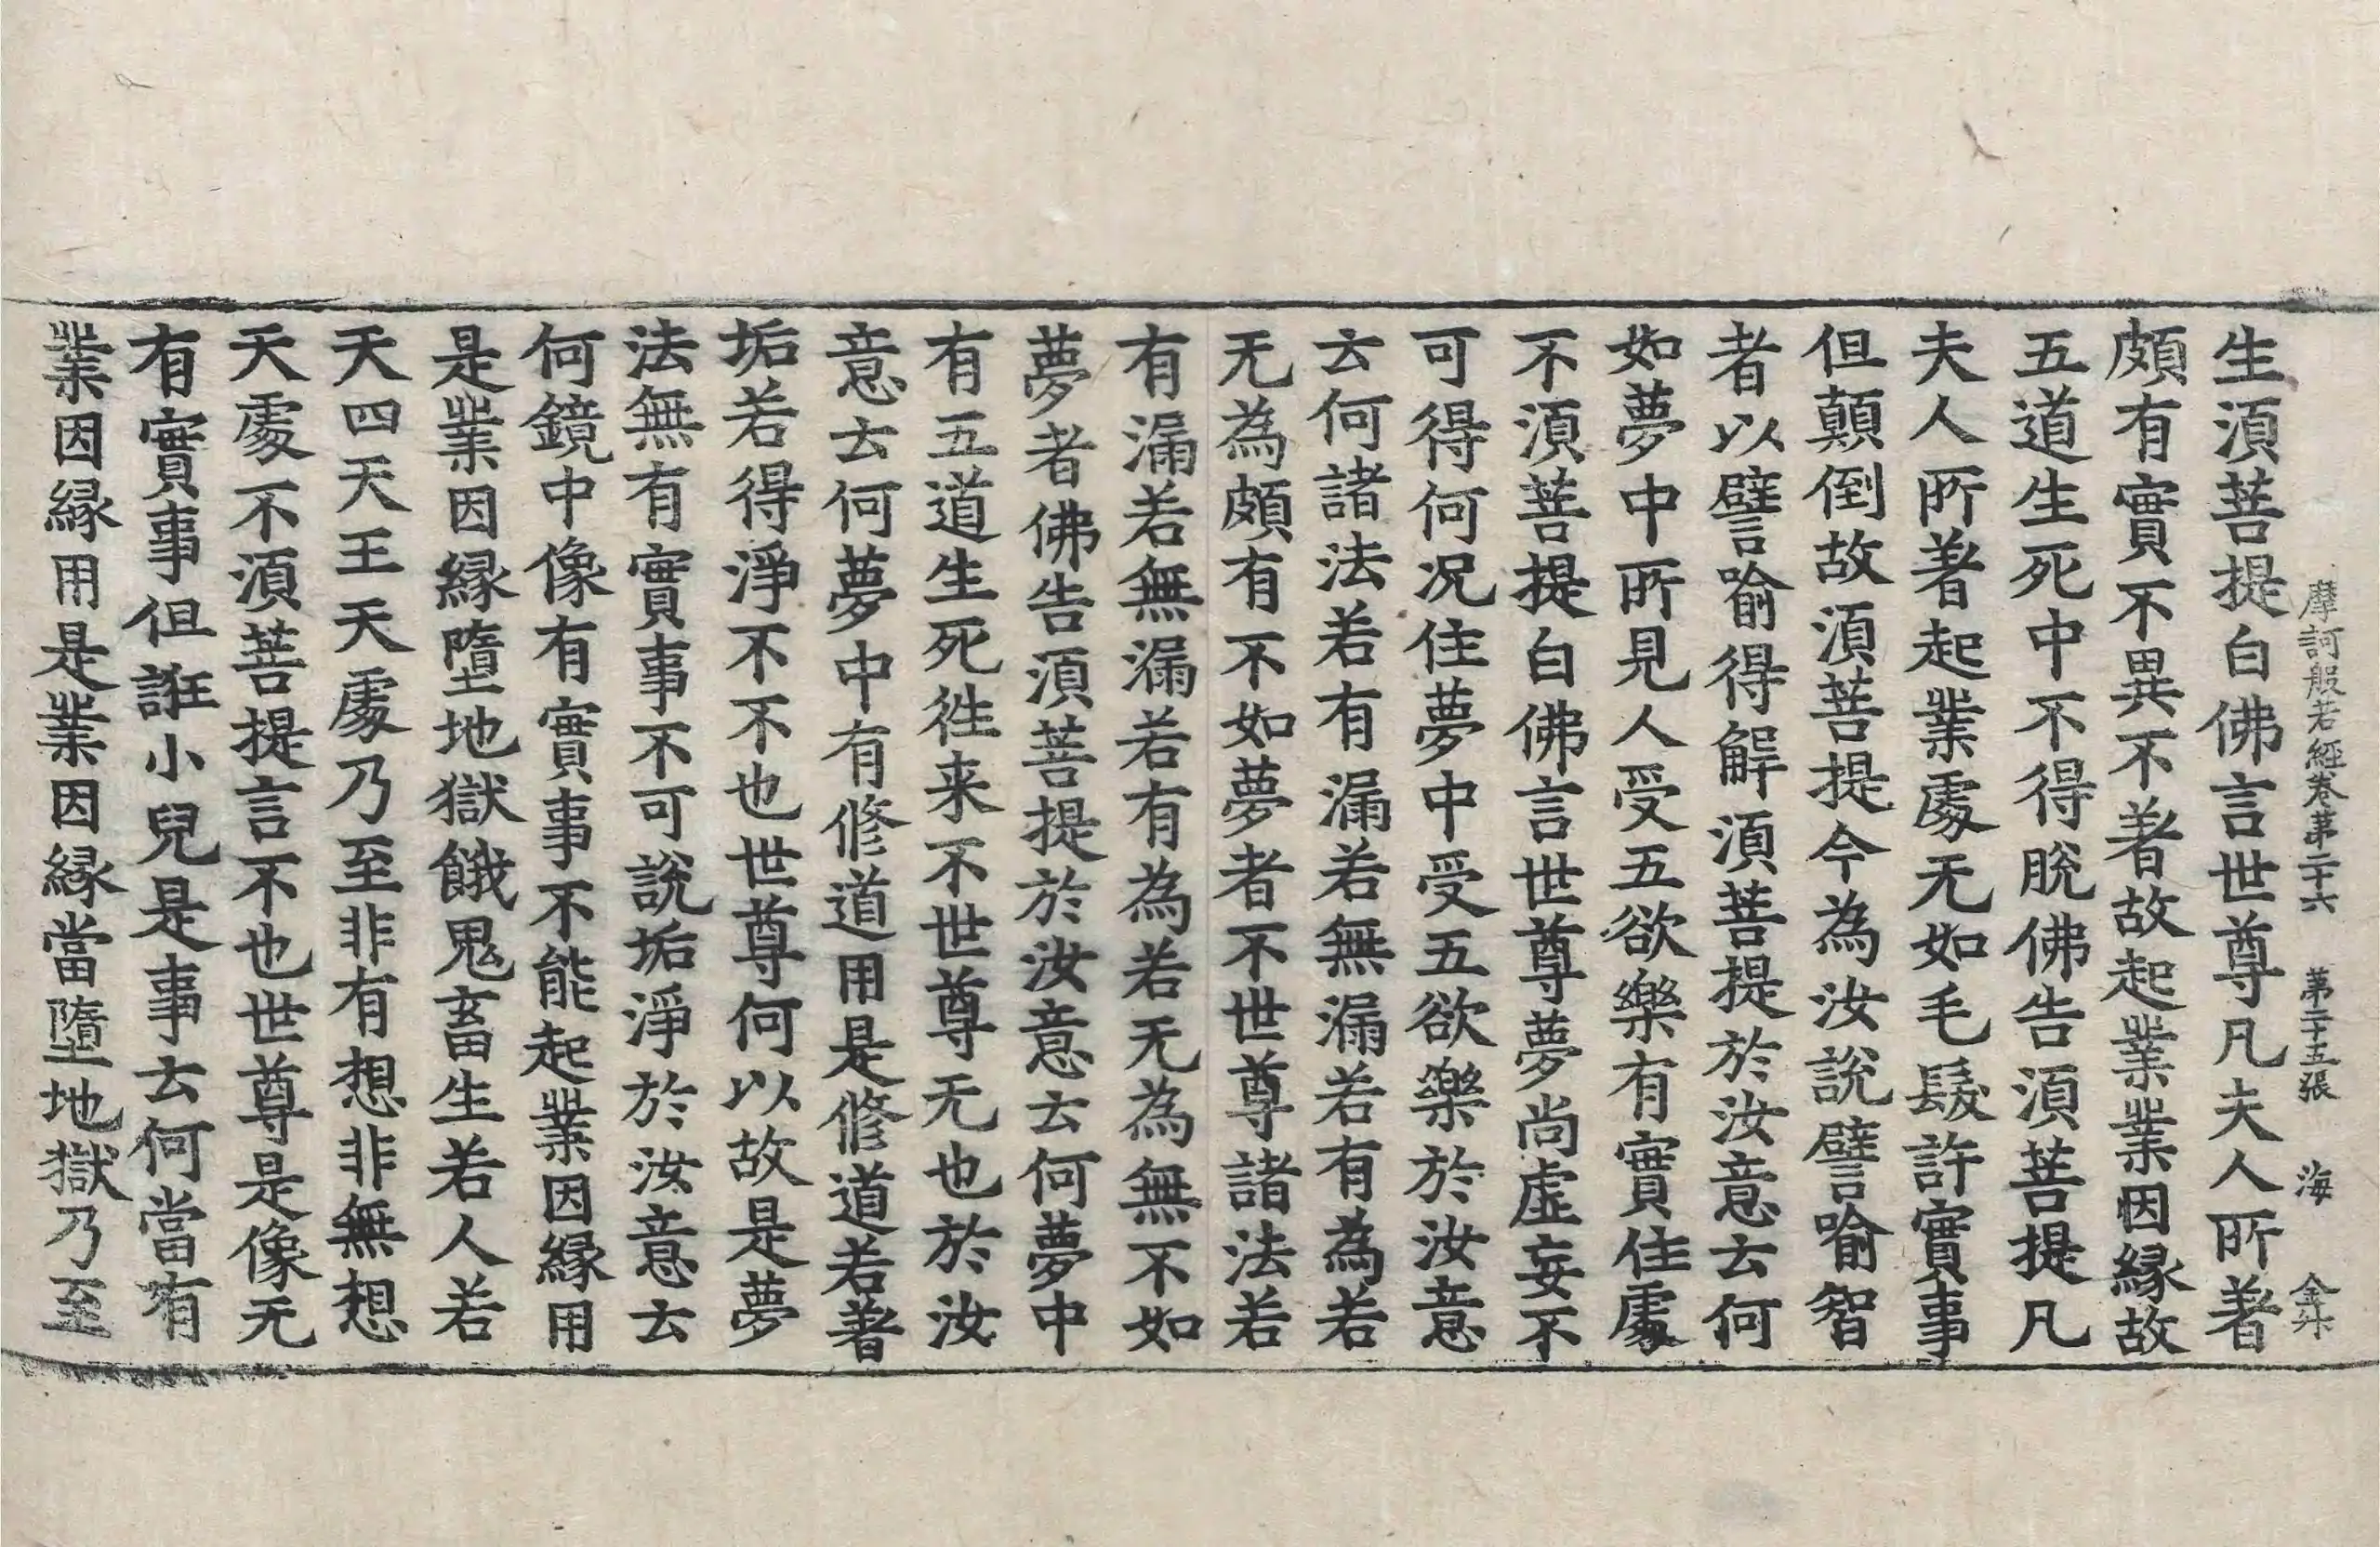 摩訶般若經卷苐二十六　苐二十五張　海　金升
生湏菩提白佛言世尊凡夫人所著
頗有實不異不著故起業業因縁故
五道生死中不得脫佛告湏菩提凡
夫人所著起業處无如毛髮許實事
但顛倒故湏菩提今為汝說譬喻智
者以譬喻得解湏菩提於汝意云何
如夢中所見人受五欲樂有實住處
不湏菩提白佛言世尊夢尚虛妄不
可得何況住夢中受五欲樂於汝意
云何諸法若有漏若無漏若有為若
无為頗有不如夢者不世尊諸法若
有漏若無漏若有為若无為無不如
夢者佛告湏菩提於汝意云何夢中
有五道生死徃来不世尊无也於汝
意云何夢中有修道用是修道若著
垢若得淨不不也世尊何以故是夢
法無有實事不可說垢淨於汝意云
何鏡中像有實事不能起業因縁用
是業因縁墮地獄餓鬼畜生若人若
天四天王天處乃至非有想非無想
天處不湏菩提言不也世尊是像无
有實事但誑小兒是事云何當有
業因縁用是業因縁當墮地獄乃至